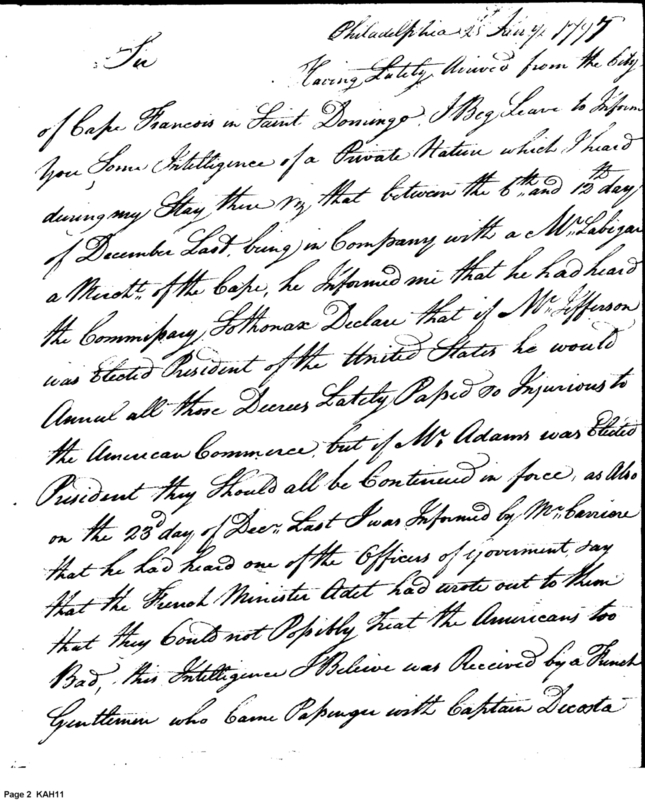 Philadelphia 25 Jany 1797
Sir
Having Lately Arived from the City
of Cape Francois in Saint Domingo, I Beg Leave to Inform
You Some Intelligence of a Private Nature which I heard
during my Stay there viz that between the 6th and 12th day
of December Last, being in Company with a Mr. Labigar
a Mercht. of the Cape, he Informed me that he had heard
the Commissary Sothonax Declare that if Mr. Jefferson
was Elected President of the United States he would
Annul all those Decrees Lately Passed so Injurious to
the American Commerce, but if Mr. Adams was Elected
President they Should all be Contenued in force, as Also
on the 23d day of Decr. Last I was Informed by Mr. Carriere
that he had heard one of the Officers of Goverment, say
that the French Minister Adet had wrote out to them
that they Could not Possibly Treat the Americans too
Bad, this Intelligence I Beleive was Received by a French
Gentlemen who Came Passenger with Captain Decosta
Page 2 KAH11